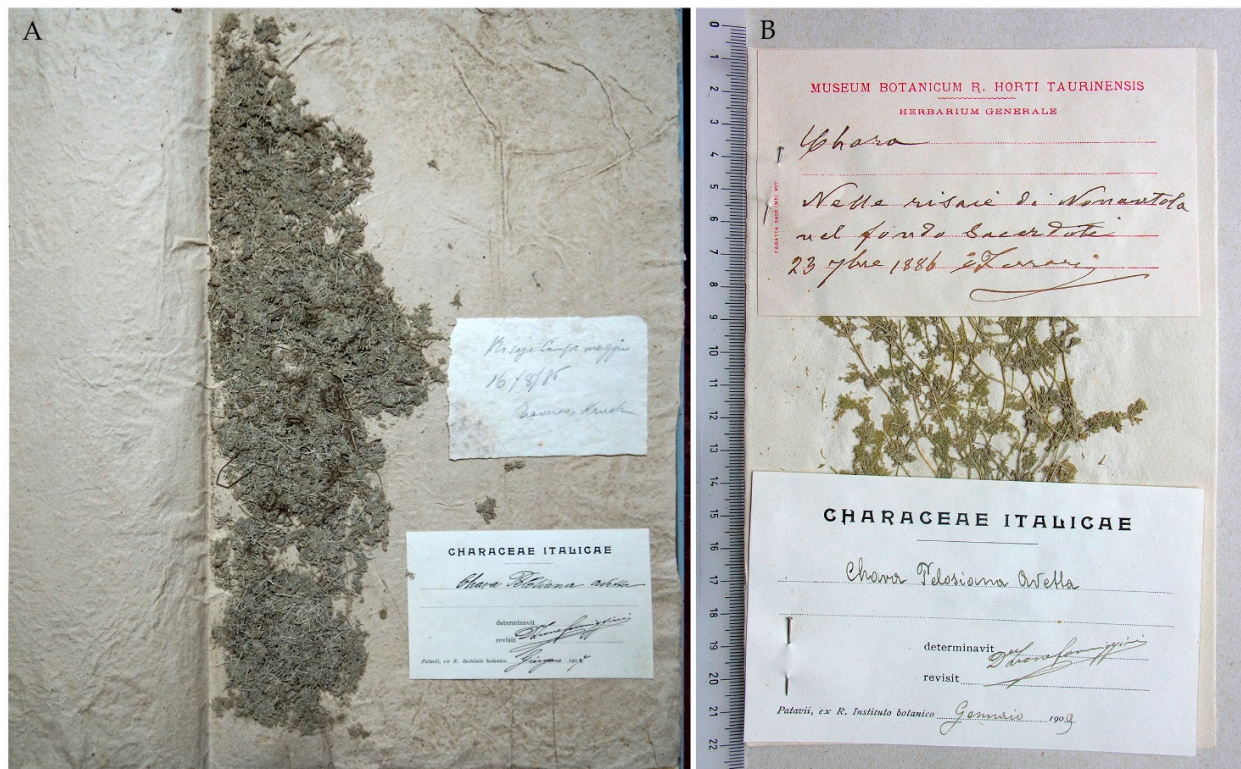 A
Risaje
16/8/86
CHARACEAE ITALICAE
Chara Pelosiana Avetta
determinavit
revisit
Patavii, ex R. Instituto botanico Giugno 190
B
0
1
2
3
4
5
6
7
8
9
10
11
12
13
14
15
16
17
18
19
20
21
22
MUSEUM BOTANICUM R. HORTI TAURINENSIS
HERBARIUM GENERALE
Chara
Nelle risaie di Nonantola
nel fondo Sacerdoti
23 7bre 1886 E Ferrari
CHARACEAE ITALICAE
Chara Pelosiana Avetta
determinavit
revisit
Patavii, ex R. Instituto botanico Gennaio 1909